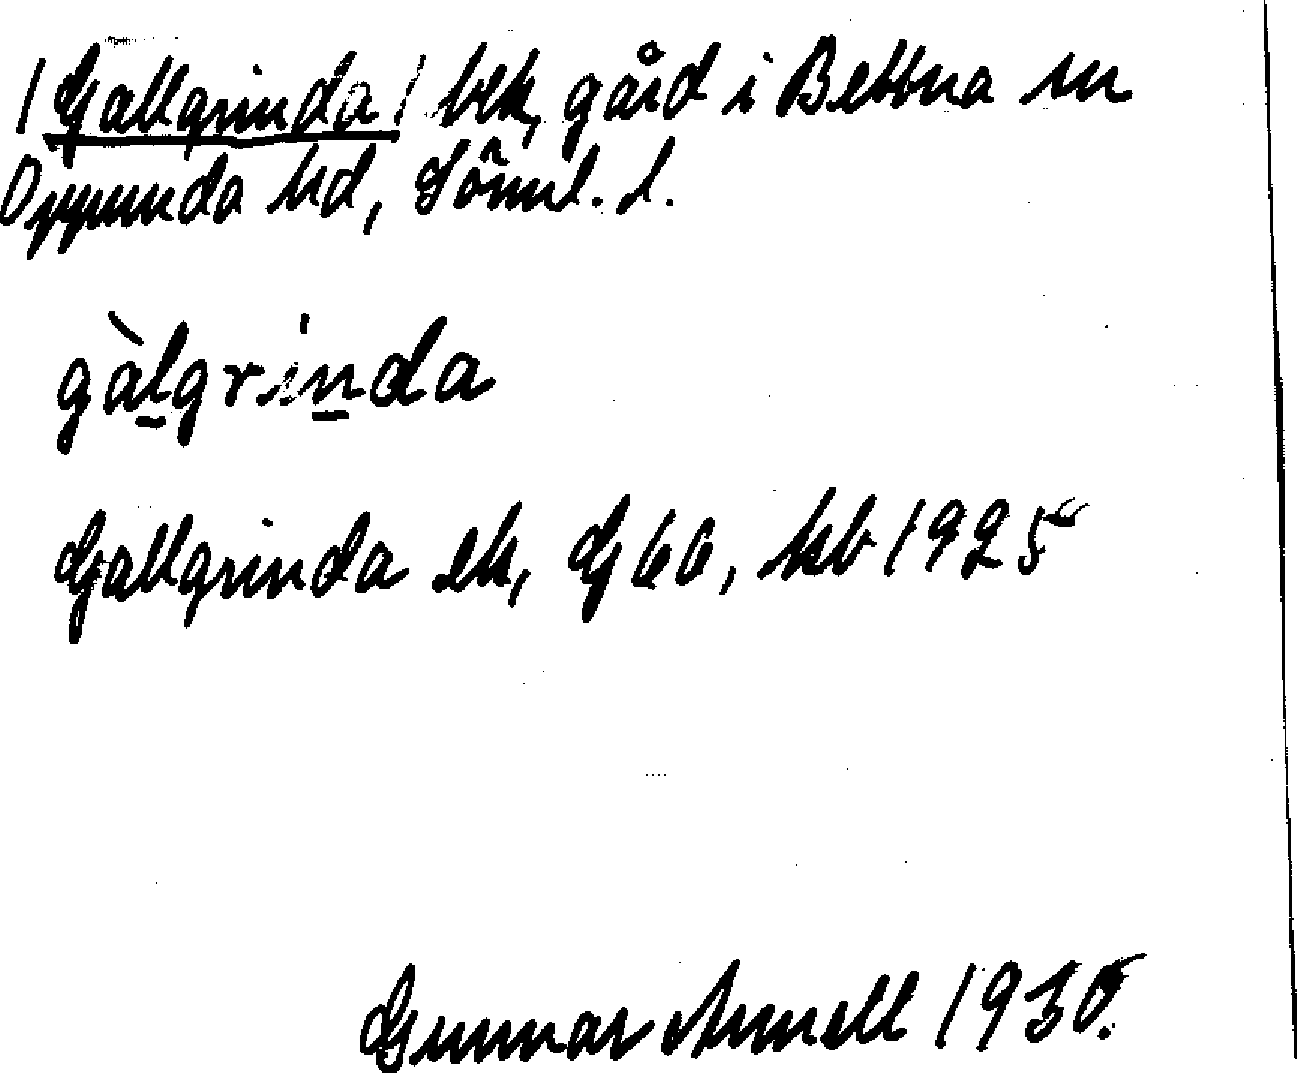 /Gallgrinda/ bek, gård i Bettna sn
Oppunda hd, Söml. l.
gàl̲grin̲da
Gallgrinda ek, G 66, kb 1925
Gunnar Arnell 1930.